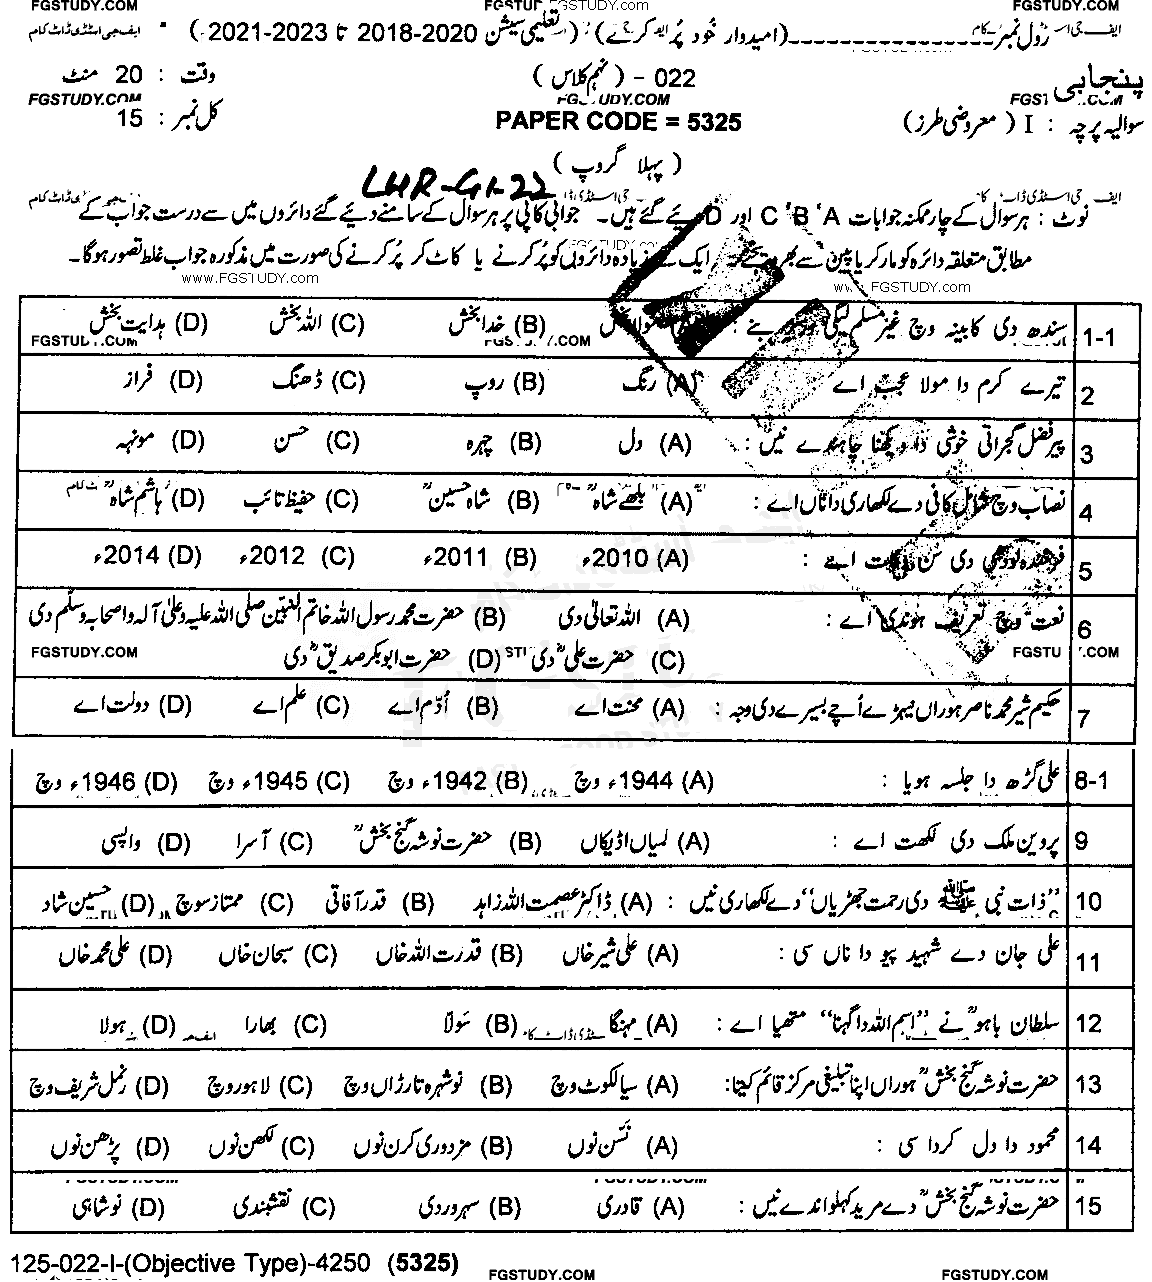 FGSTUDY.COM FGSTUDY.COM FGSTUDY.COM
رول نمبر ________ (امیدوار خود پُر کرے) (تعلیمی سیشن 2020-2018 تا 2023-2021)
پنجابی 022 - (نہم کلاس) وقت : 20 منٹ
FGSTUDY.COM FGSTUDY.COM
سوالیہ پرچہ : I (معروضی طرز) PAPER CODE = 5325 کل نمبر : 15
(پہلا گروپ)
LHR-G1-22
نوٹ : ہر سوال کے چار ممکنہ جوابات A ' B ' C اور D دیئے گئے ہیں۔ جوابی کاپی پر ہر سوال کے سامنے دیئے گئے دائروں میں سے درست جواب کے
مطابق متعلقہ دائرہ کو مارکر یا پین سے بھر ایک سے زیادہ دائروں کو پُر کرنے یا کاٹ کر پُر کرنے کی صورت میں مذکورہ جواب غلط تصور ہوگا۔
www.FGSTUDY.com FGSTUDY.com
1-1 سندھ دی کابینہ وچ غیر مسلم لیگی بنے : (B) خدا بخش (C) اللہ بخش (D) ہدایت بخش
FGSTUDY.COM
2 تیرے کرم دا مولا عجب اے (A) رنگ (B) روپ (C) ڈھنگ (D) فراز
3 پیر فضل گجراتی خوشی دا دیکھنا چاہندے نیں : (A) دل (B) چہرہ (C) حسن (D) مونہہ
4 نصاب وچ شامل کافی دے لکھاری دا ناں اے : (A) بلھے شاہؒ (B) شاہ حسینؒ (C) حفیظ تائب (D) ہاشم شاہؒ
5 فرخندہ لودھی دی سن اے : (A) 2010ء (B) 2011ء (C) 2012ء (D) 2014ء
6 نعت وچ تعریف ہوندی اے : (A) اللہ تعالیٰ دی (B) حضرت محمد رسول اللہ خاتم النبیین صلی اللہ علیہ وعلیٰ آلہ واصحابہ وسلم دی
(C) حضرت علیؓ دی (D) حضرت ابوبکر صدیقؓ دی
FGSTUDY.COM
7 حکیم شیر محمد ناصر ہوراں یہڑے اُچے بسیرے دی وجہ : (A) محنت اے (B) اُدّم اے (C) علم اے (D) دولت اے
8-1 علی گڑھ دا جلسہ ہویا : (A) 1944ء وچ (B) 1942ء وچ (C) 1945ء وچ (D) 1946ء وچ
9 پروین ملک دی لکھت اے : (A) لمیاں اڈیکاں (B) حضرت نوشہ گنج بخشؒ (C) آسرا (D) واپسی
10 ”ذات نبی ﷺ دی رحمت جھڑیاں“ دے لکھاری نیں : (A) ڈاکٹر عصمت اللہ زاہد (B) قدر آفاقی (C) ممتاز سوچ (D) حسین شاد
11 علی جان دے شہید پیو دا ناں سی : (A) علی شیر خاں (B) قدرت اللہ خاں (C) سبحان خاں (D) علی محمد خاں
12 سلطان باہوؒ نے ”اسم اللہ دا گہنا“ متھیا اے : (A) مہنگا (B) سَولّا (C) بھارا (D) ہولا
13 حضرت نوشہ گنج بخشؒ ہوراں اپنا تبلیغی مرکز قائم کیتا: (A) سیالکوٹ وچ (B) نوشہرہ تارڑاں وچ (C) لاہور وچ (D) رنمل شریف وچ
14 محمود دا دل کردا سی : (A) نَسّن نوں (B) مزدوری کرن نوں (C) لکھن نوں (D) پڑھن نوں
15 حضرت نوشہ گنج بخشؒ دے مرید کہلواندے نیں : (A) قادری (B) سہروردی (C) نقشبندی (D) نوشاہی
125-022-I-(Objective Type)-4250 (5325)
FGSTUDY.COM FGSTUDY.COM